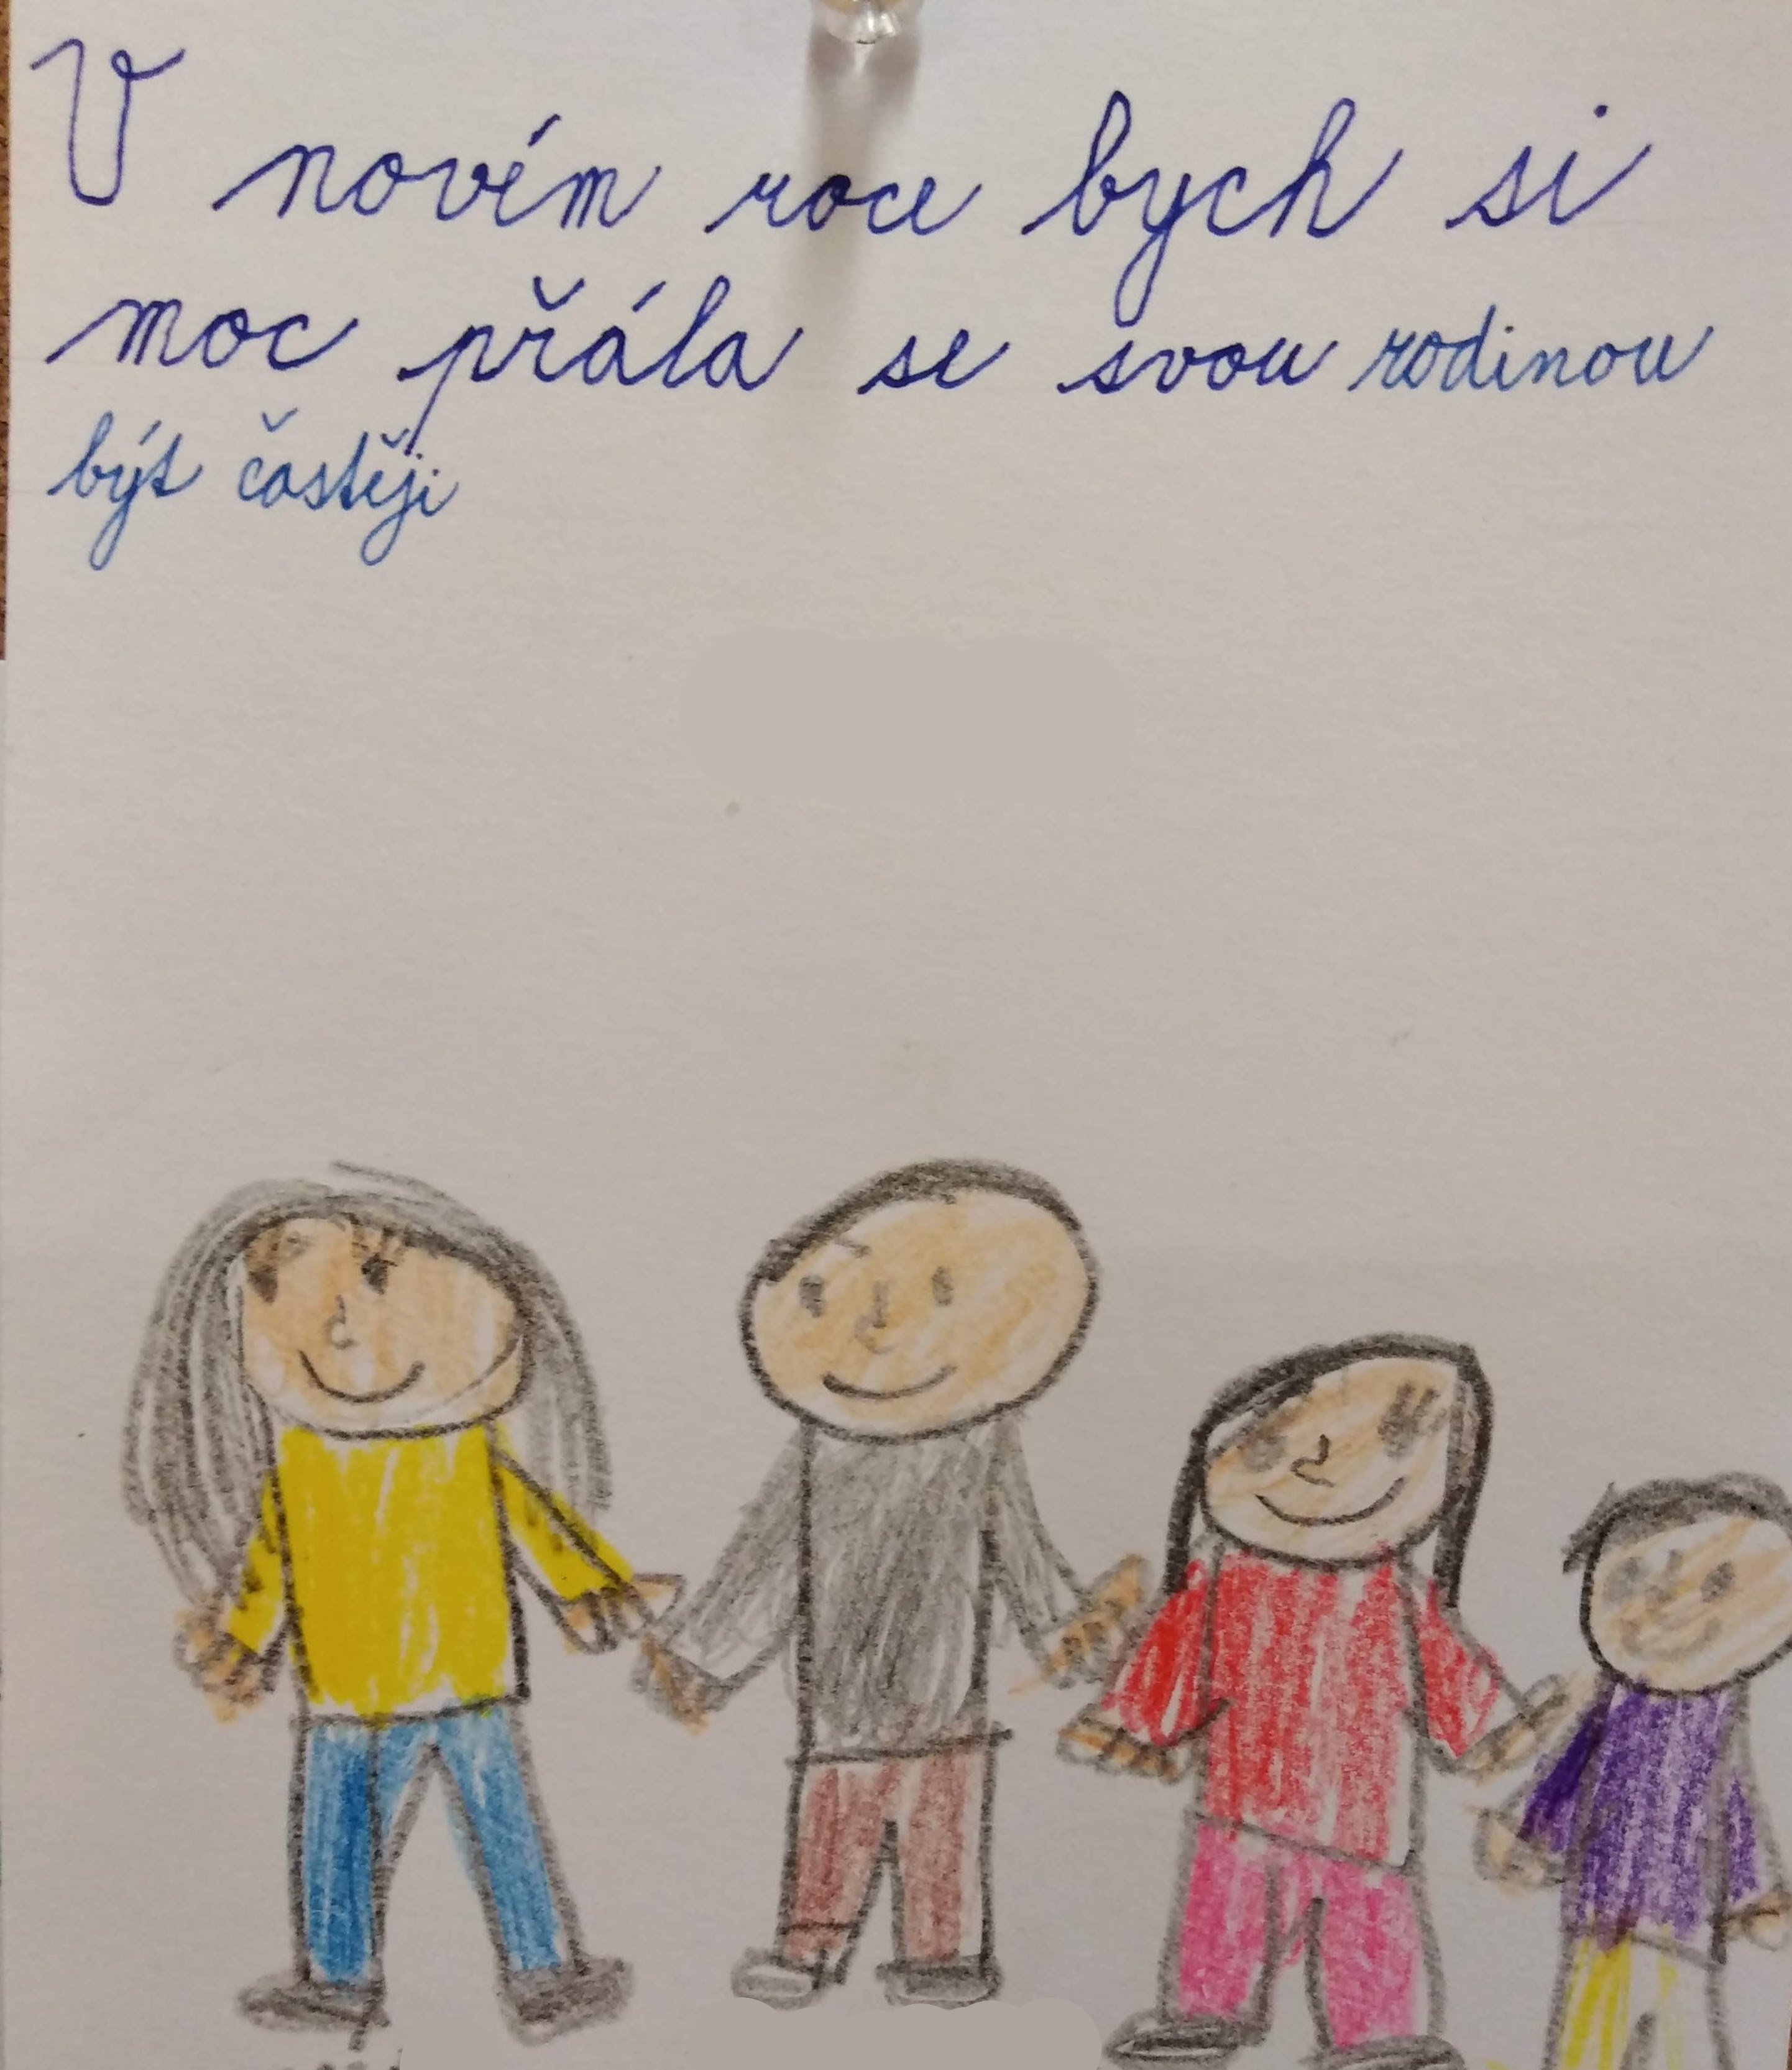 V novém roce bych si
moc přála se svou rodinou
být častěji